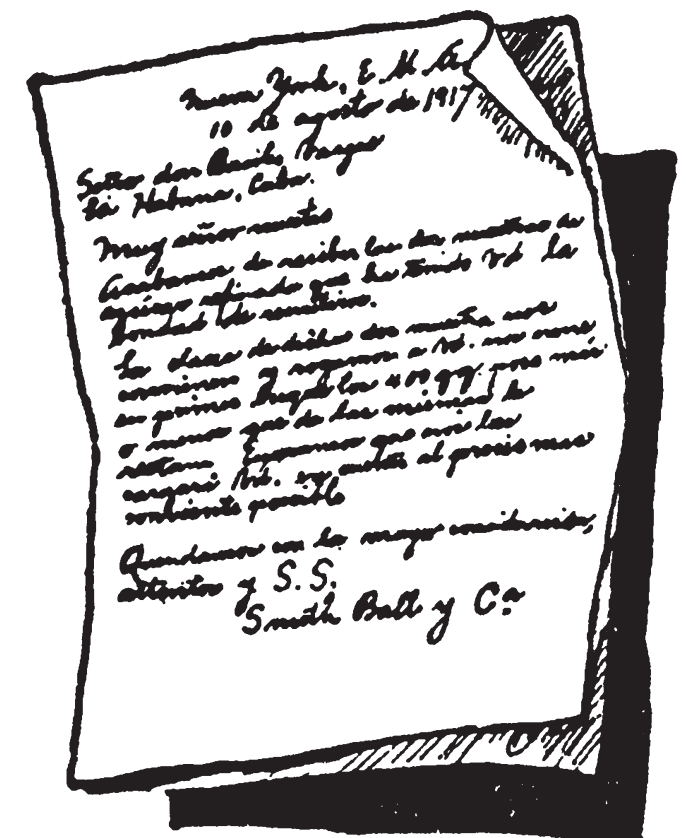 Nueva York, E. U. A.
10 de agosto de 1917
Señor don Basilio Vargas
La Habana, Cuba.
Muy señor nuestro
Acabamos de recibir las dos muestras de
azúcar refinado que ha tenido Vd la
bondad de remitirnos.
La clase de dichas dos muestra nos
conviene y rogamos a Vd. nos mande
en primer buque los 400 qq. poco más
o menos que de las mismas le
restan. Esperamos que nos los
cargará Vd. en cuenta al precio mas
conveniente posible
Quedamos con la mayor consideración,
atentos y S. S.
Smith Ball y Cª